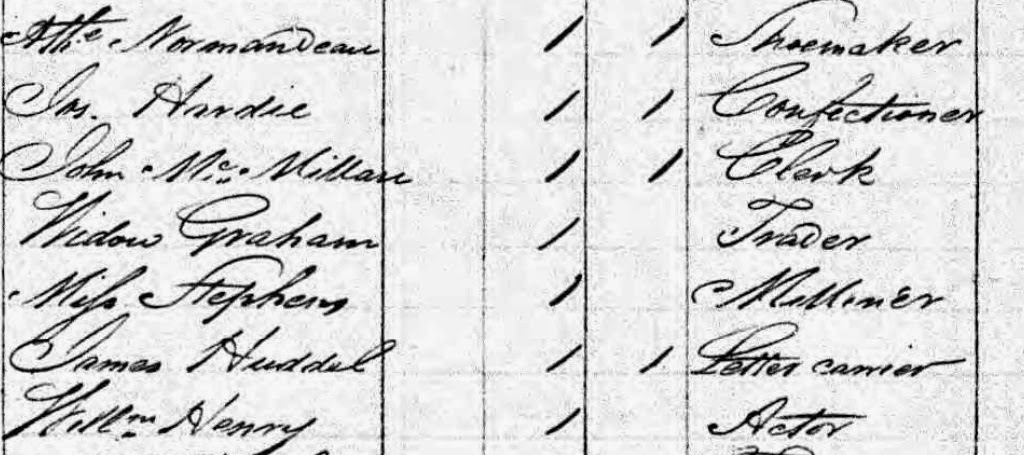 Atte Normandeau 1 1 Shoemaker
Jas. Hardie 1 1 Confectioner
John Mc Millan 1 1 Clerk
Widow Graham 1 Trader
Miss Stephens 1 Milliner
James Huddel 1 1 Letter carrier
Willm Henry 1 Actor